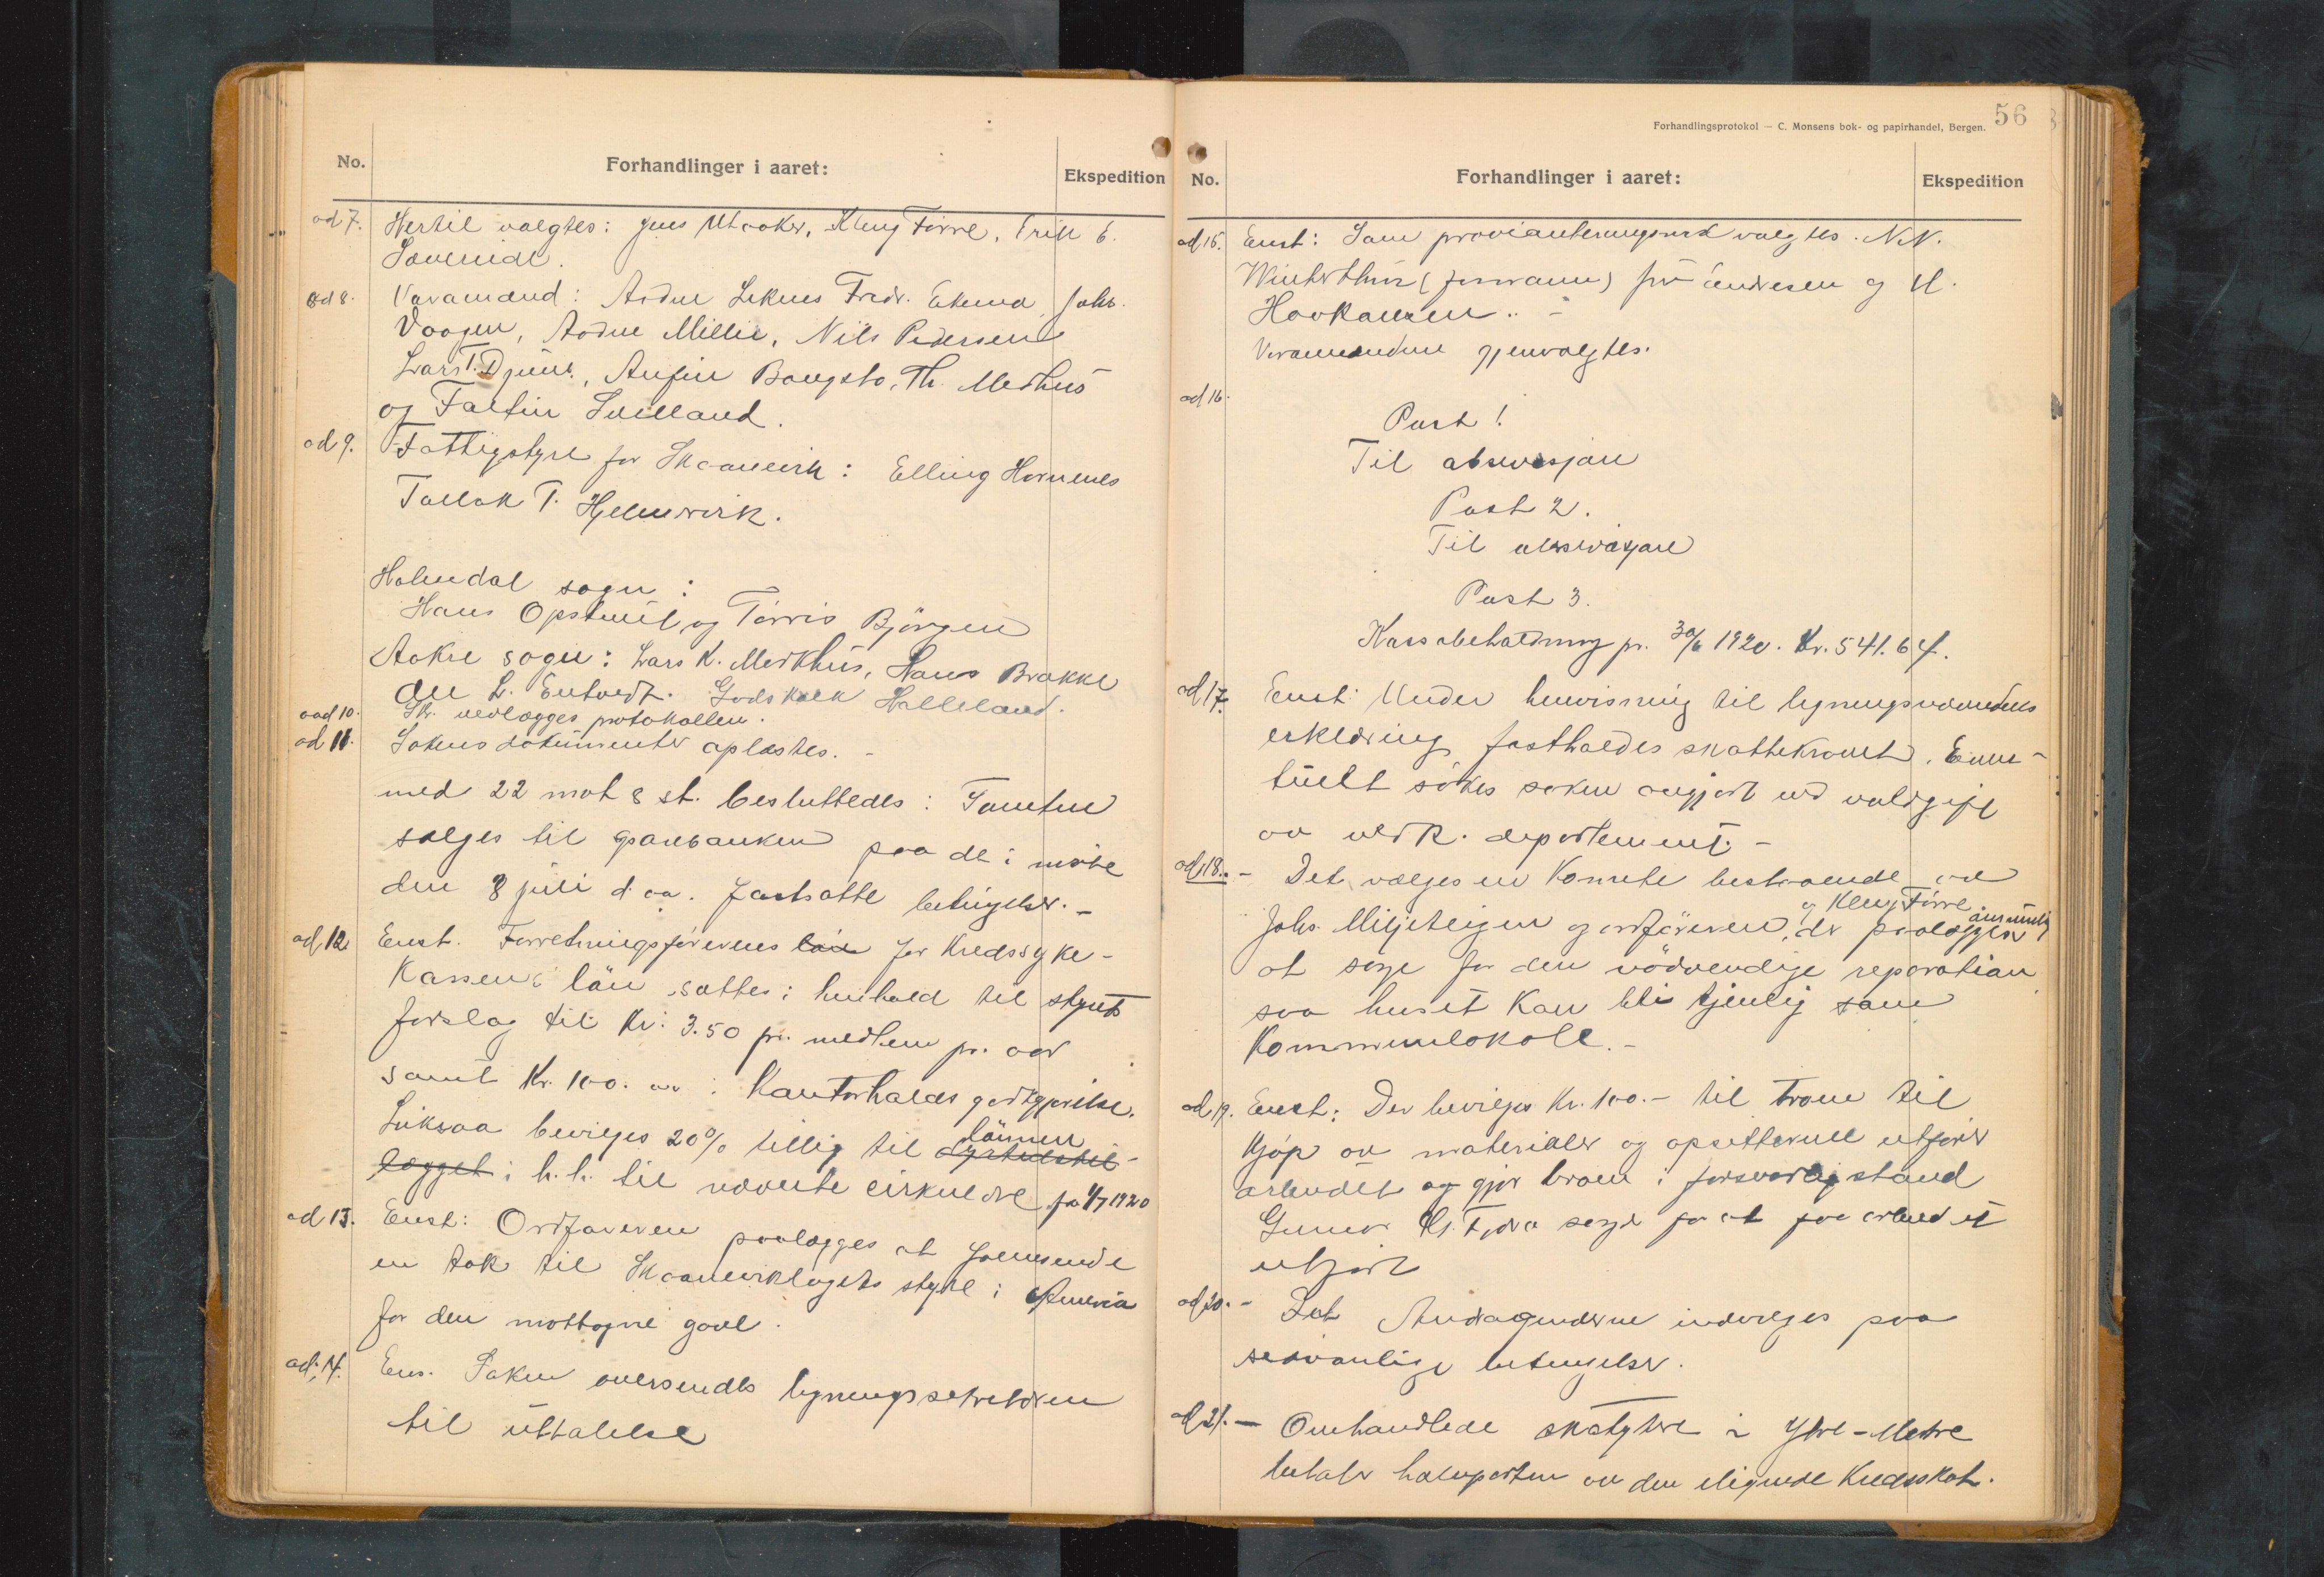 No.
Forhandlinger i aaret:
Ekspedition
ad 7. Hertil valgtes: Jens Utaaker, Kleng Førre, Erik E.
Severeide.
ad 8. Varamænd: Aadne Leknes Fredr. Eikemo, Johs.
Vaagen, Aadne Millie, Nils Pedersen
Lars T. Djuve, Anfin Baugsto, Th. Medhus
og Faltin Svelland.
ad 9. Fattigstyre for Skaanevik: Elling Hornenes
Tallak T. Hjelmvik.
Holmedal sogn:
Hans Opsteül og Tørris Bjørgen
Aakre sogn: Lars K. Merkhus, Hans Brakke
Ole L. Entvedt. Godskalk Halleland.
aad 10. Sk. vedlægges protokollen.
ad 11. Sakens dokümenter oplæstes. -
med 22 mot 8 st. besluttedes: Tomten
sælges til sparebanken paa de i møte
den 8 juli d. aa. fastsatte betingelser. -
ad 12. Enst. Forretningsførerens løn for Kredssyke-
kassen: løn sættes i henhold til styrets
forslag til Kr. 3.50 pr. medlem pr. aar
samt Kr. 100. i Kontorholds godtgjørelse.
Likesaa bevilges 20% tillæg til dyrtidstil- lønnen
lægget i h. h. til nævnte cirkulære fra 1/7 1920
ad 13. Enst: Ordføreren paalægges at fremsende
en tak til Skaaneviklagets styre i America
for den mottagne gave.
ad. 14. Ens. Saken oversendes ligningssekretæren
til üttalelse
56
Forhandlingsprotokol — C. Monsens bok- og papirhandel, Bergen.
No.
Forhandlinger i aaret:
Ekspedition
ad 15. Enst: Som provianteringsraad valgtes. N.N.
Winterthun (formann) frü Andresen og H.
Haakansen.. -
Varamændene gjenvalgtes.
ad 16.
Post 1
Til observasjon
Post 2.
Til observasjon
Post 3.
Kassabeholdning pr. 30/6 1920. Kr. 541.64.
ad 17. Enst: Under henvisning til ligningsnævndens
erklæring fastholdes skattekravet. Even-
tüelt søkes saken avgjort ved voldgift
av vedk. departement. -
ad 18. - Det vælges en Komite bestaaende av
Johs. Miljeteigen og ordføreren, og Kleng Førre der paalægges ansvarlig
at sørge for den nødvendige reparation
saa huset kan bli tjenlig som
Kommunelokale. -
ad 19. Enst: Der bevilges Kr. 100.- til broen til
kjøp av materialer og opsitterne utfører
arbeidet og gjør broen i forsvarlig stand
Gunnar Kr. Fjæra sørger for at faa arbeidet
utført
ad 20. - Enst Andragenderne indvilges paa
sedvanlige betingelser.
ad 21. - Omhandlede skatytere i Ytre-Matre
betaler halvparten av den utlignede Kredsskat.